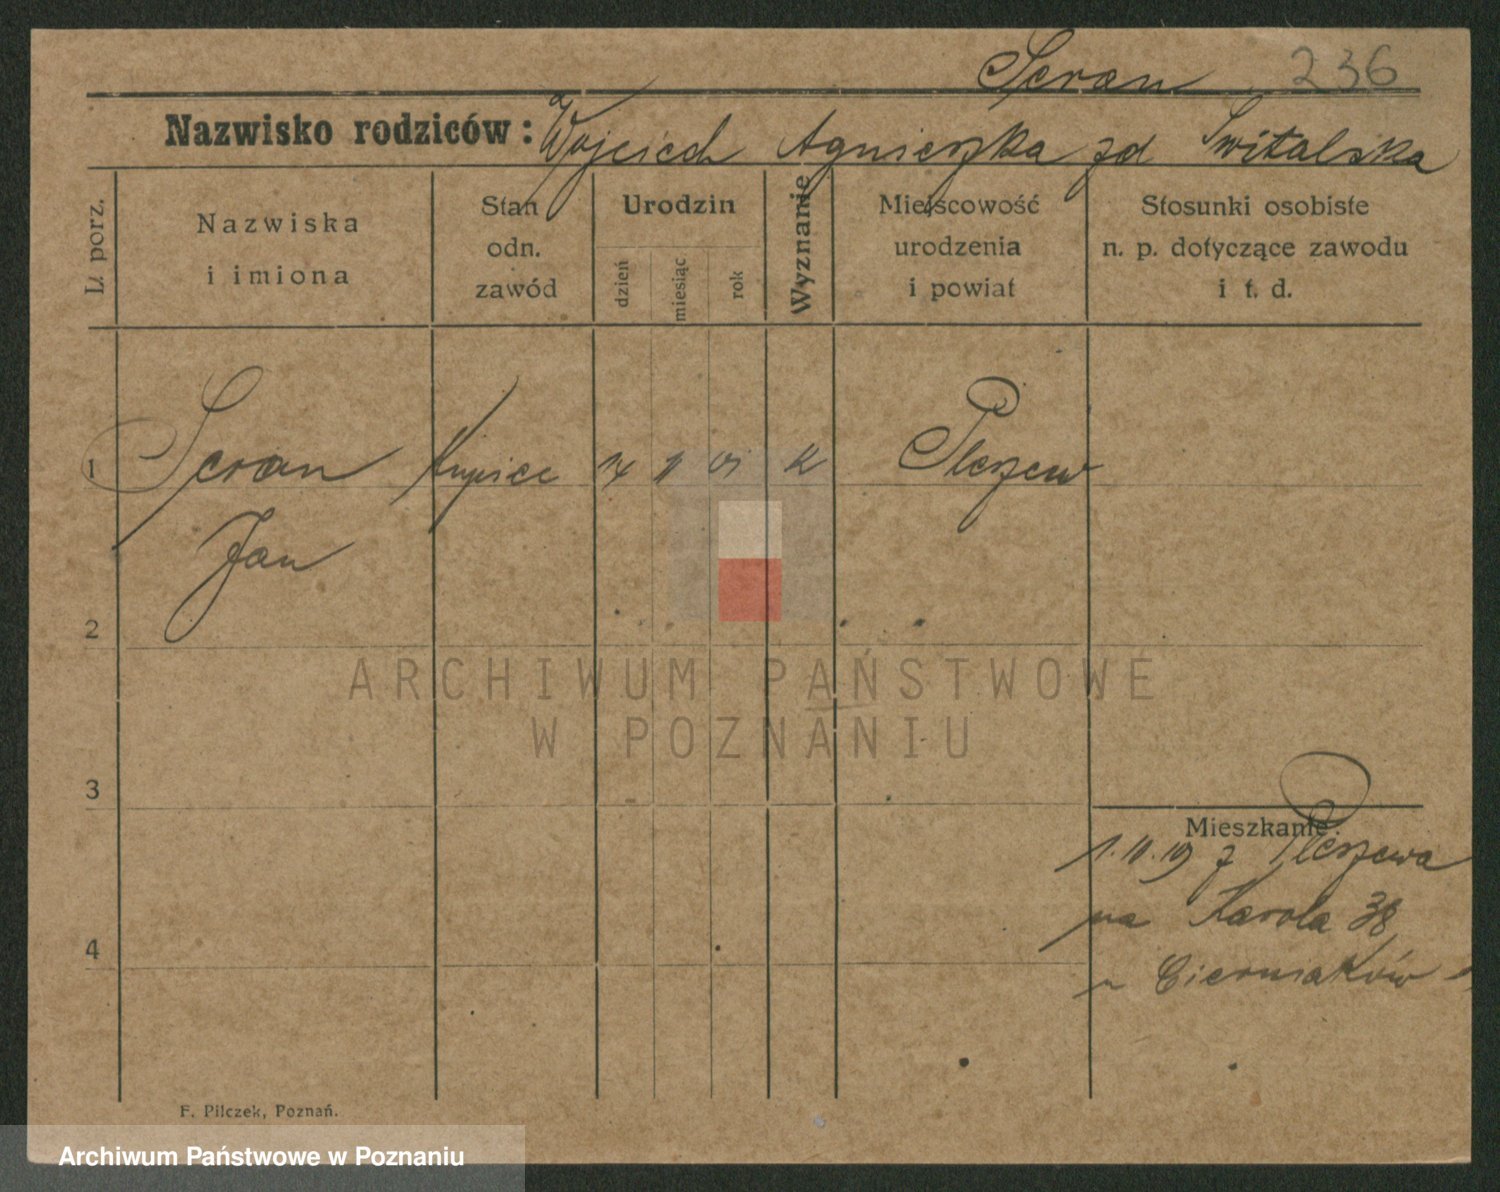 Seran 236
Nazwisko rodziców: Wojciech Agnieszka zd Switalska
L. porz.
Nazwiska
i imiona
Stan
odn.
zawód
Urodzin
dzień
miesiąc
rok
Wyznanie
Miejscowość
urodzenia
i powiat
Stosunki osobiste
n. p. dotyczące zawodu
i t. d.
1 Seran Kupiec 14 K Pleszew
Jan
2
ARCHIWUM PAŃSTWOWE
W POZNANIU
3
Mieszkanie:
z Pleszewa
na Karola 38
4
F. Pilczek, Poznań.
Archiwum Państwowe w Poznaniu